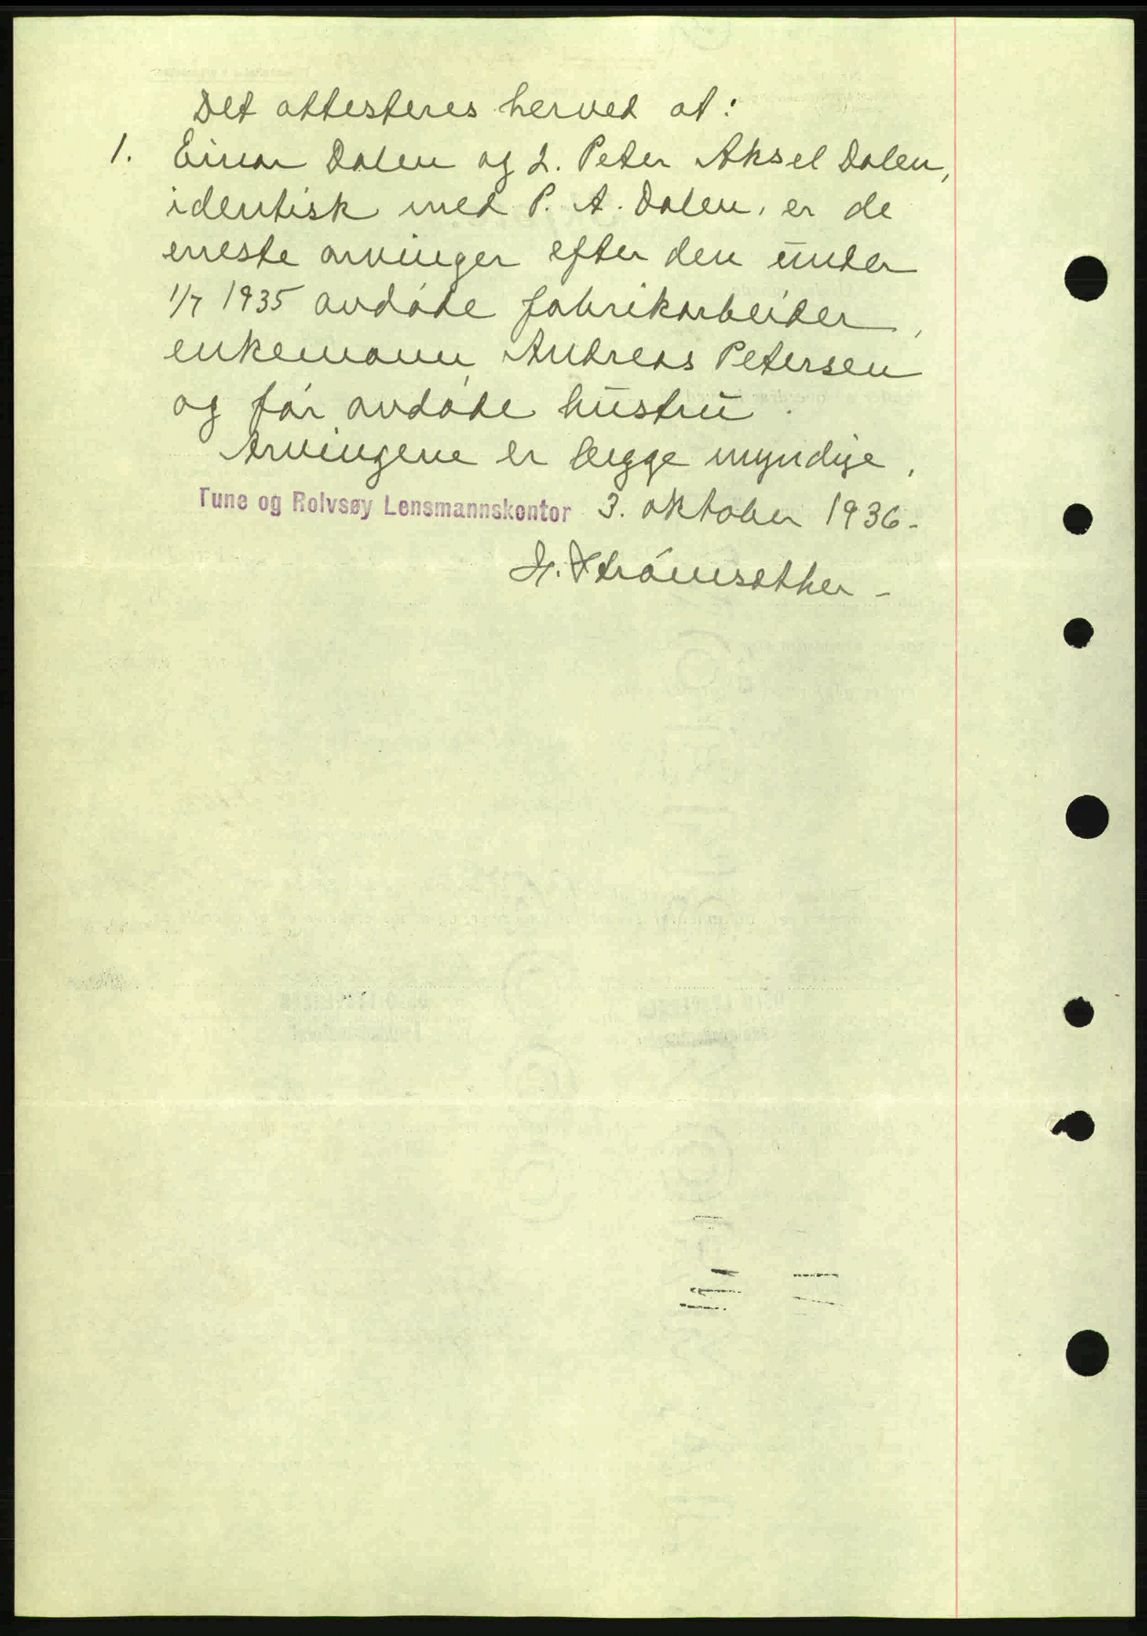 Det attesteres herved at:
1. Einar Dalen og 2. Peter Aksel Dalen,
identisk med P. A. Dalen, er de
eneste arvinger efter den under
1/7 1935 avdøde fabrikarbeider,
enkemann Andreas Petersen
og før avdøde hustru.
Arvingene er begge myndige.
Tune og Rolvsøy Lensmannskontor 3. oktober 1936-
H. Strømsæther -